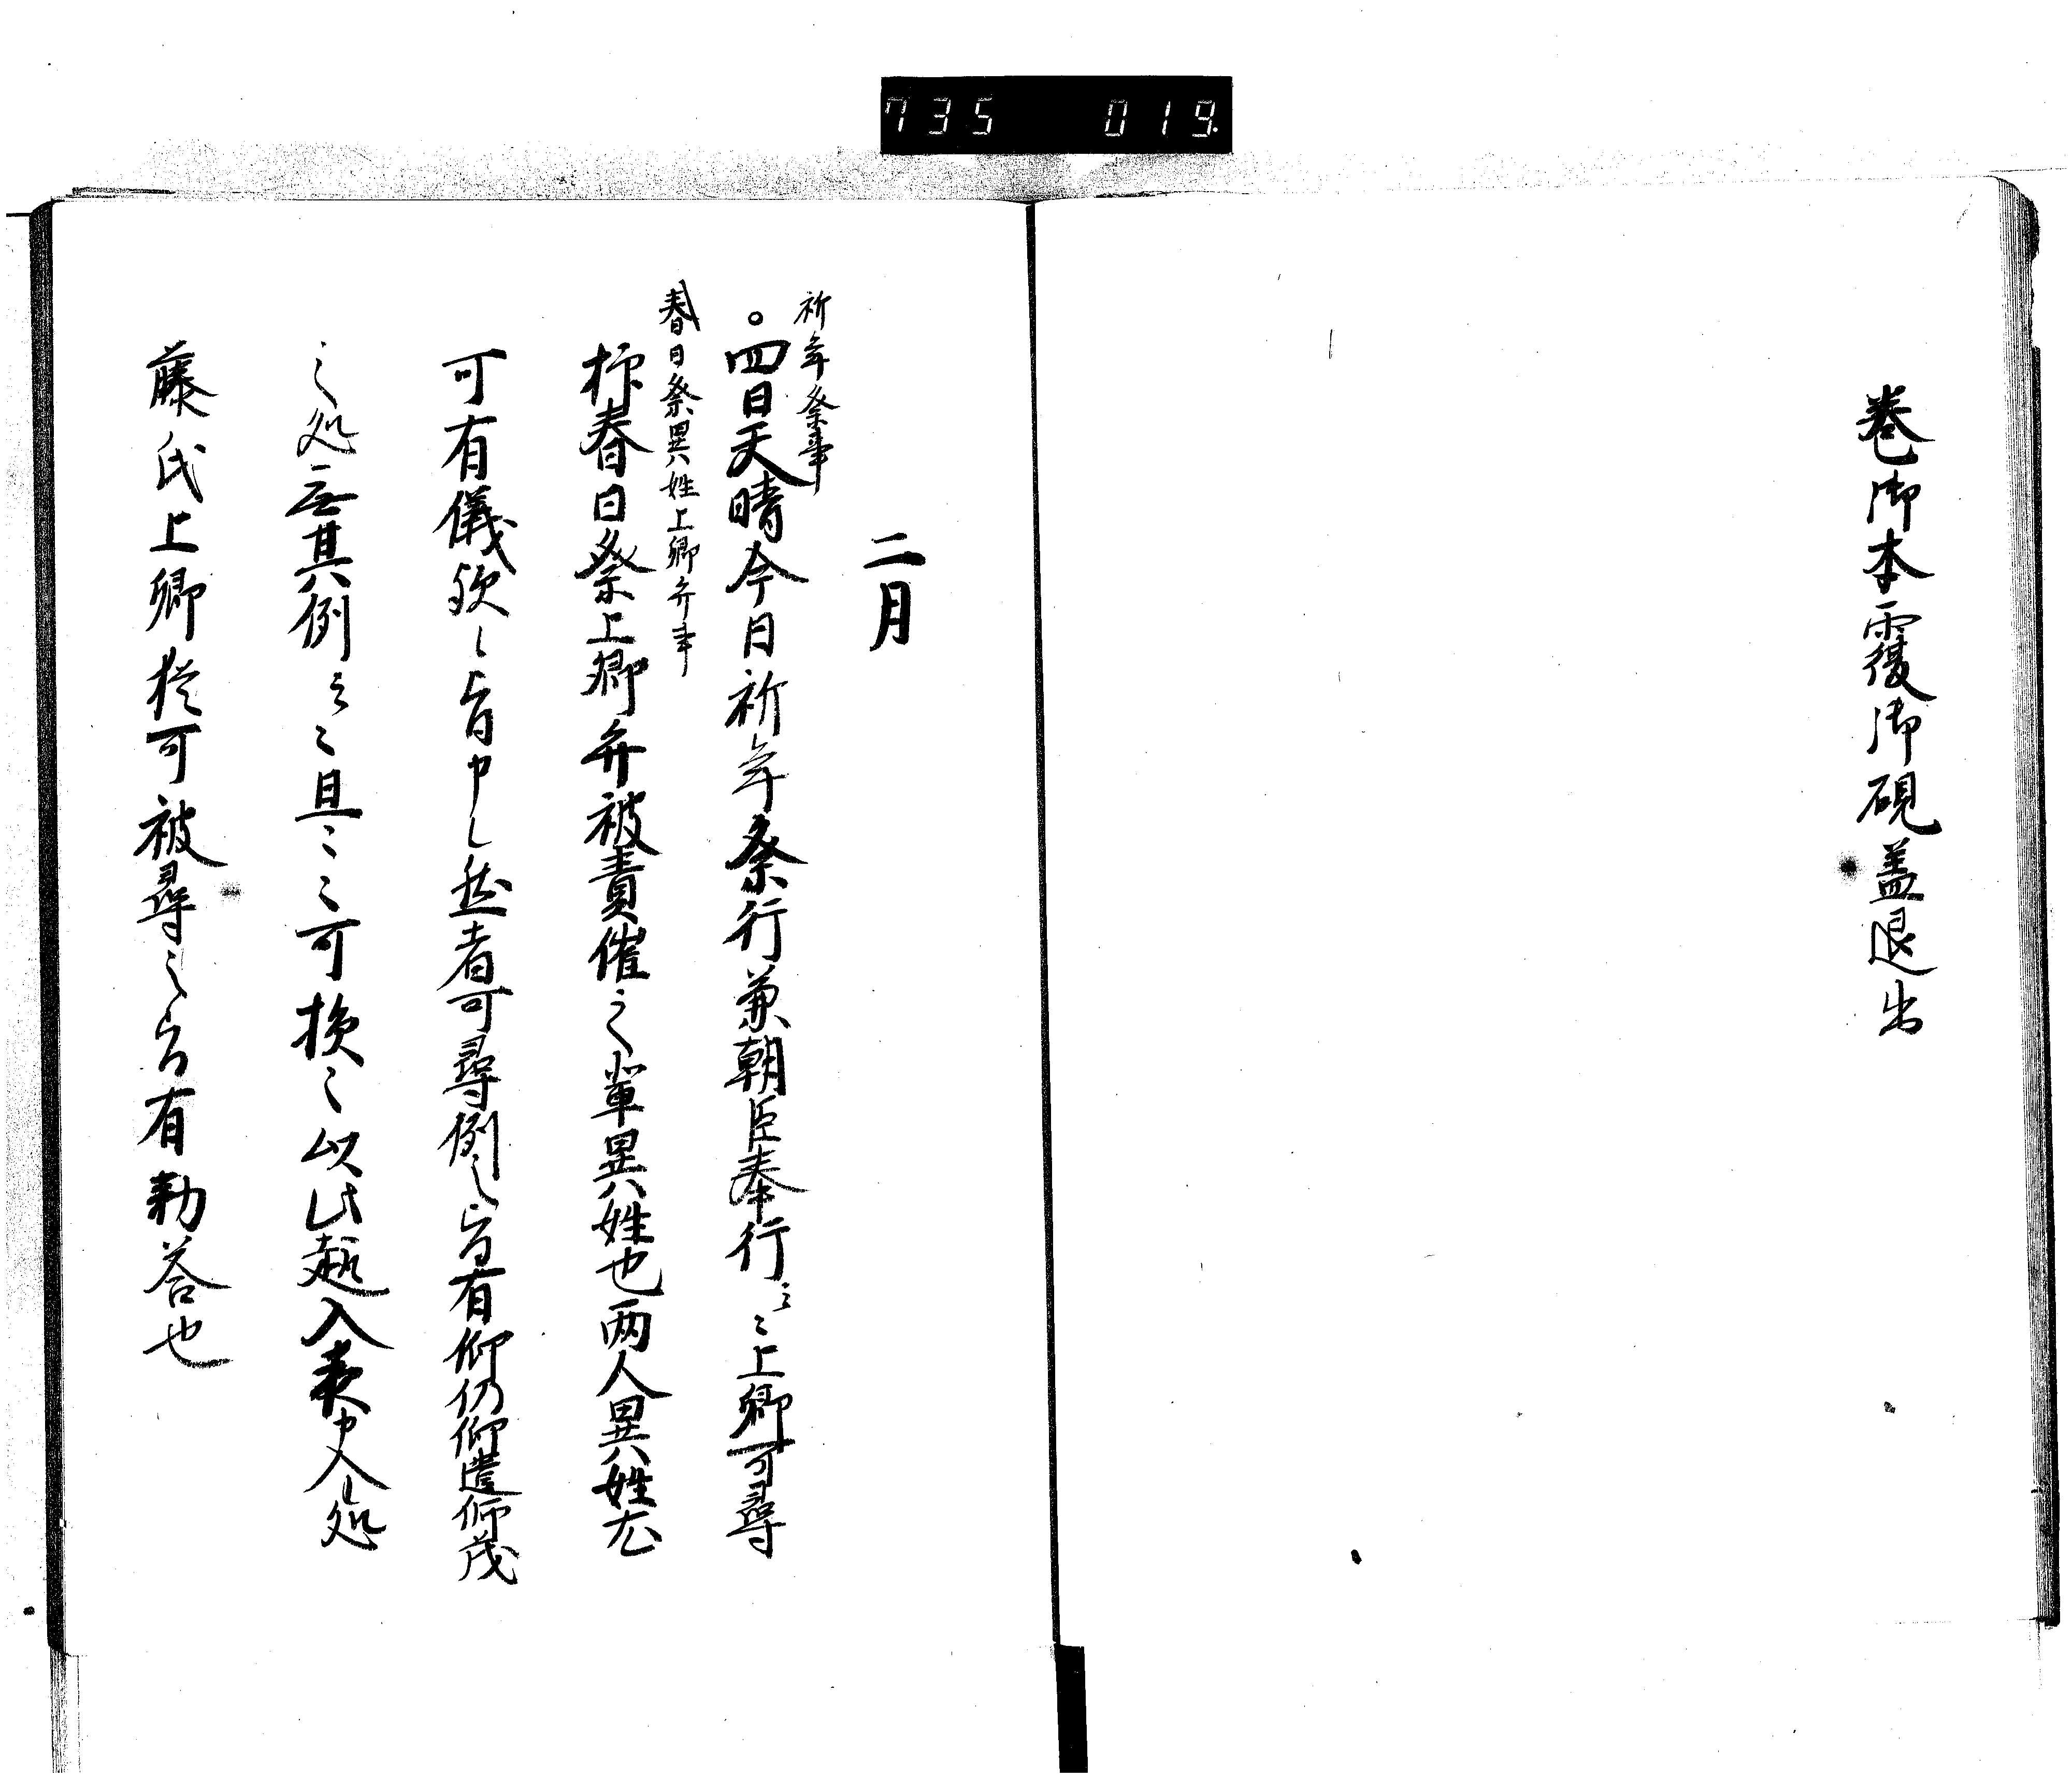 735 019.
巻御本覆御硯蓋退出
二月
祈年祭事
。四日天晴今日祈年祭行兼朝臣奉行云々上卿可尋
春日祭異姓上卿弁事
抑春日祭上卿弁被責催之輩異姓也両人異姓尤
可有儀欤之旨申之然者可尋例之旨有仰仍仰遣師茂
之処無其例云々且々可換之以此趣入夷申入之処
藤氏上卿猶可被尋之旨有勅答也